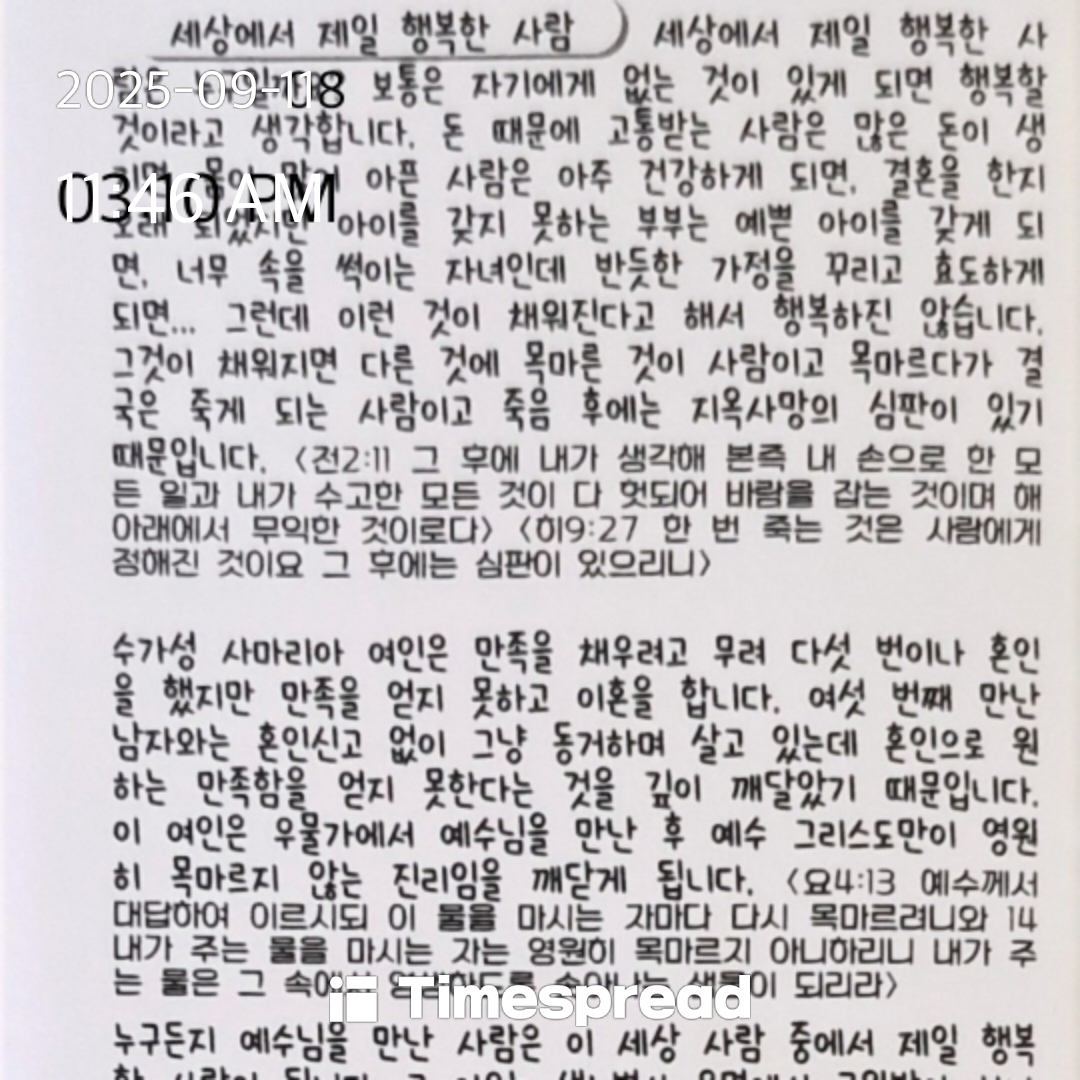 세상에서 제일 행복한 사람 세상에서 제일 행복한 사
보통은 자기에게 없는 것이 있게 되면 행복할
것이라고 생각합니다. 돈 때문에 고통받는 사람은 많은 돈이 생
아픈 사람은 아주 건강하게 되면, 결혼을 한지
아이를 갖지 못하는 부부는 예쁜 아이를 갖게 되
면, 너무 속을 썩이는 자녀인데 반듯한 가정을 꾸리고 효도하게
되면... 그런데 이런 것이 채워진다고 해서 행복하진 않습니다.
그것이 채워지면 다른 것에 목마른 것이 사람이고 목마르다가 결
국은 죽게 되는 사람이고 죽음 후에는 지옥사망의 심판이 있기
때문입니다. <전2:11 그 후에 내가 생각해 본즉 내 손으로 한 모
든 일과 내가 수고한 모든 것이 다 헛되어 바람을 잡는 것이며 해
아래에서 무익한 것이로다> <히9:27 한 번 죽는 것은 사람에게
정해진 것이요 그 후에는 심판이 있으리니>
수가성 사마리아 여인은 만족을 채우려고 무려 다섯 번이나 혼인
을 했지만 만족을 얻지 못하고 이혼을 합니다. 여섯 번째 만난
남자와는 혼인신고 없이 그냥 동거하며 살고 있는데 혼인으로 원
하는 만족함을 얻지 못한다는 것을 깊이 깨달았기 때문입니다.
이 여인은 우물가에서 예수님을 만난 후 예수 그리스도만이 영원
히 목마르지 않는 진리임을 깨닫게 됩니다. <요4:13 예수께서
대답하여 이르시되 이 물을 마시는 자마다 다시 목마르려니와 14
내가 주는 물을 마시는 자는 영원히 목마르지 아니하리니 내가 주
는 물은 그 속에서 되리라>
누구든지 예수님을 만난 사람은 이 세상 사람 중에서 제일 행복
2025-09-11
11:46 AM
Timespread